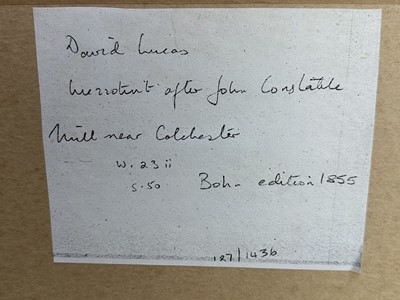 David Lucas
Mezzotint after John Constable
Mill near Colchester
W. 23 ii
S. 50 Bohn edition 1855
127/1436